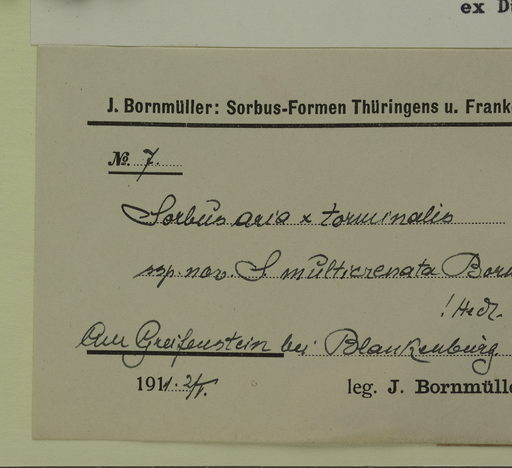 ex D
J. Bornmüller: Sorbus-Formen Thüringens u. Frank
No. 7.
Sorbus aria x torminalis
ssp. nov. S multicrenata Born
! Hedl.
Am Greifenstein bei Blankenburg.
1911. 2/
leg. J. Bornmülle